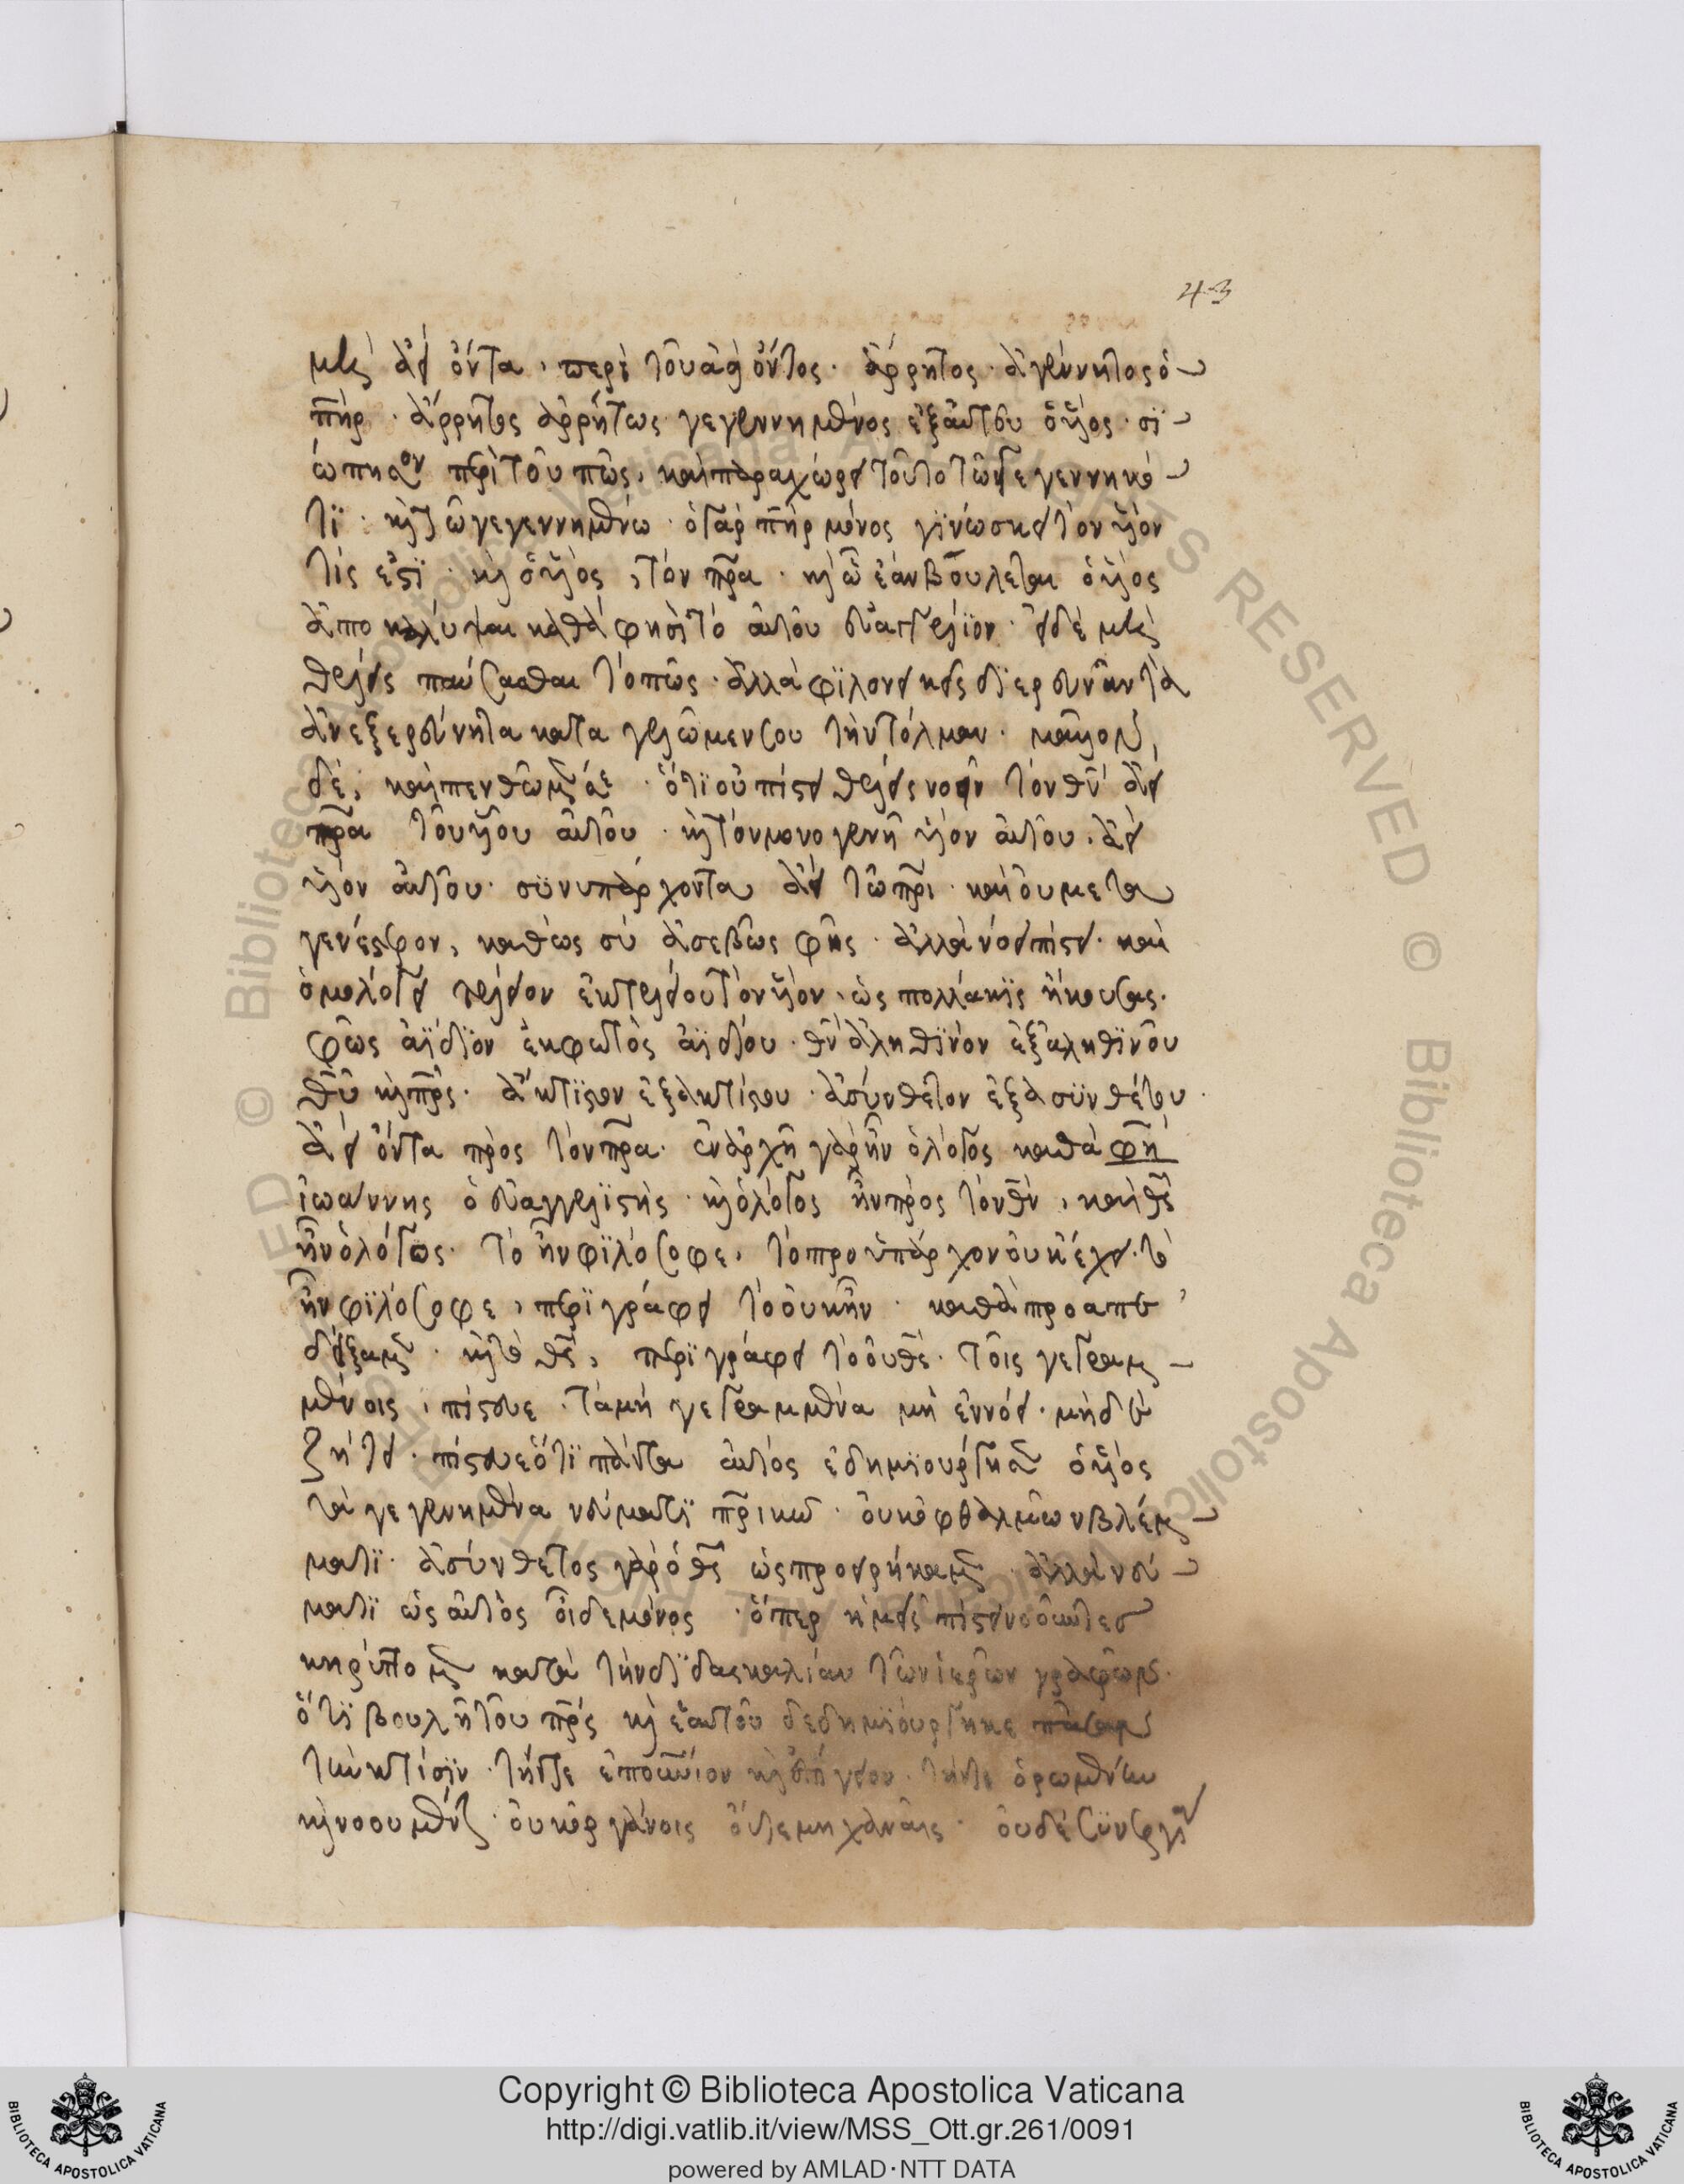 43
μὴ ἀεὶ ὄντα, περὶ τοῦ ἀεὶ ὄντος. ἄρρητος ἀγέννητος ὁ
πηρ. ἄρρητος ἀρρήτως γεγεννημένος ἐξ αὐτοῦ ὁ υἱός. σι
ώπησον περὶ τοῦ πῶς, καὶ παραχώρει τοῦτο τῶ γεγεννηκό
τι. καὶ τῶ γεγεννημένω. ὁ γὰρ πηρ μόνος γινώσκει τὸν υἱὸν
τίς ἐστι. καὶ ὁ υἱὸς, τὸν πρα. καὶ ὧ ἐὰν βούλεται ὁ υἱὸς
ἀποκαλύψαι καθά φησι τὸ αὐτοῦ εὐαγγέλιον. εἰ δὲ μὴ
θέλεις παύσασθαι τὸ πῶς. ἀλλὰ φιλονεικεῖς διερευνᾶν τὰ
ἀνεξερεύνητα καταγελῶμεν σου τὴν τόλμαν. μᾶλλον
δὲ, καὶ πενθῶμεν σε. ὅτι οὐ πίστει θέλεις νοεῖν τὸν θν ἀεὶ
πρα τοῦ υἱοῦ αὐτοῦ. καὶ τὸν μονογενῆ υἱὸν αὐτοῦ. ἀεὶ
υἱὸν αὐτοῦ. συνυπάρχοντα ἀεὶ τῶ πρι. καὶ οὐ μετα
γενέστερον, καθὼς σὺ ἀσεβῶς φῆς. ἀλλὰ νόει πίστει. καὶ
ὁμολόγει τέλειον ἐκ τελείου τὸν υἱὸν, ὡς πολλάκις ἤκουσας.
φῶς ἀΐδιον ἐκ φωτὸς ἀϊδίου. θν ἀληθινὸν ἐξ ἀληθινοῦ
θυ καὶ πρς. ἄκτιστον ἐξ ἀκτίστου. ἀσύνθετον ἐξ ἀσυνθέτου.
ἀεὶ ὄντα πρὸς τὸν πρα. ἐν ἀρχῆ γὰρ ἦν ὁ λόγος καθά φη
ἰωάννης ὁ εὐαγγελιστής. καὶ ὁ λόγος ἦν πρὸς τὸν θν, καὶ θς
ἦν ὁ λόγος. τὸ ἦν φιλόσοφε, τὸ προϋπάρχον οὐκ ἔχει. τὸ
ἦν φιλόσοφε, περιγράφει τὸ οὐκ ἦν. καθὰ προαπε
δείξαμεν. καὶ τὸ θς, περιγράφει τὸ οὐ θς. τοῖς γεγραμ
μένοις, πίστευε. τὰ μὴ γεγραμμένα μὴ ἐννόει. μηδὲ
ζήτει. πίστευε ὅτι πάντα αὐτὸς ἐδημιούργησεν ὁ υἱὸς
τὰ γεγενημένα νεύματι πρικῶ. οὐκ ὀφθαλμῶν βλέμ
ματι. ἀσύνθετος γὰρ ὁ θς ὡς προειρήκαμεν. ἀλλὰ νεύ
ματι ὡς αὐτὸς οἶδε μόνος. ὅπερ ἡμεῖς πίστει νοοῦντες
κηρύττομεν κατὰ τὴν διδασκαλίαν τῶν ἱερῶν γραφῶν.
ὅτι βουλῆ τοῦ πρς καὶ ἑαυτοῦ δεδημιούργηκε πᾶσαν
τὴν κτίσιν. τήν τε ἐπουράνιον καὶ ἐπίγειον. τήν τε ὁρωμένην
καὶ νοουμένην. οὐκ ὀργάνοις οὔτε μηχαναῖς. οὐδὲ συνεργία
Copyright © Biblioteca Apostolica Vaticana
http://digi.vatlib.it/view/MSS_Ott.gr.261/0091
powered by AMLAD·NTT DATA